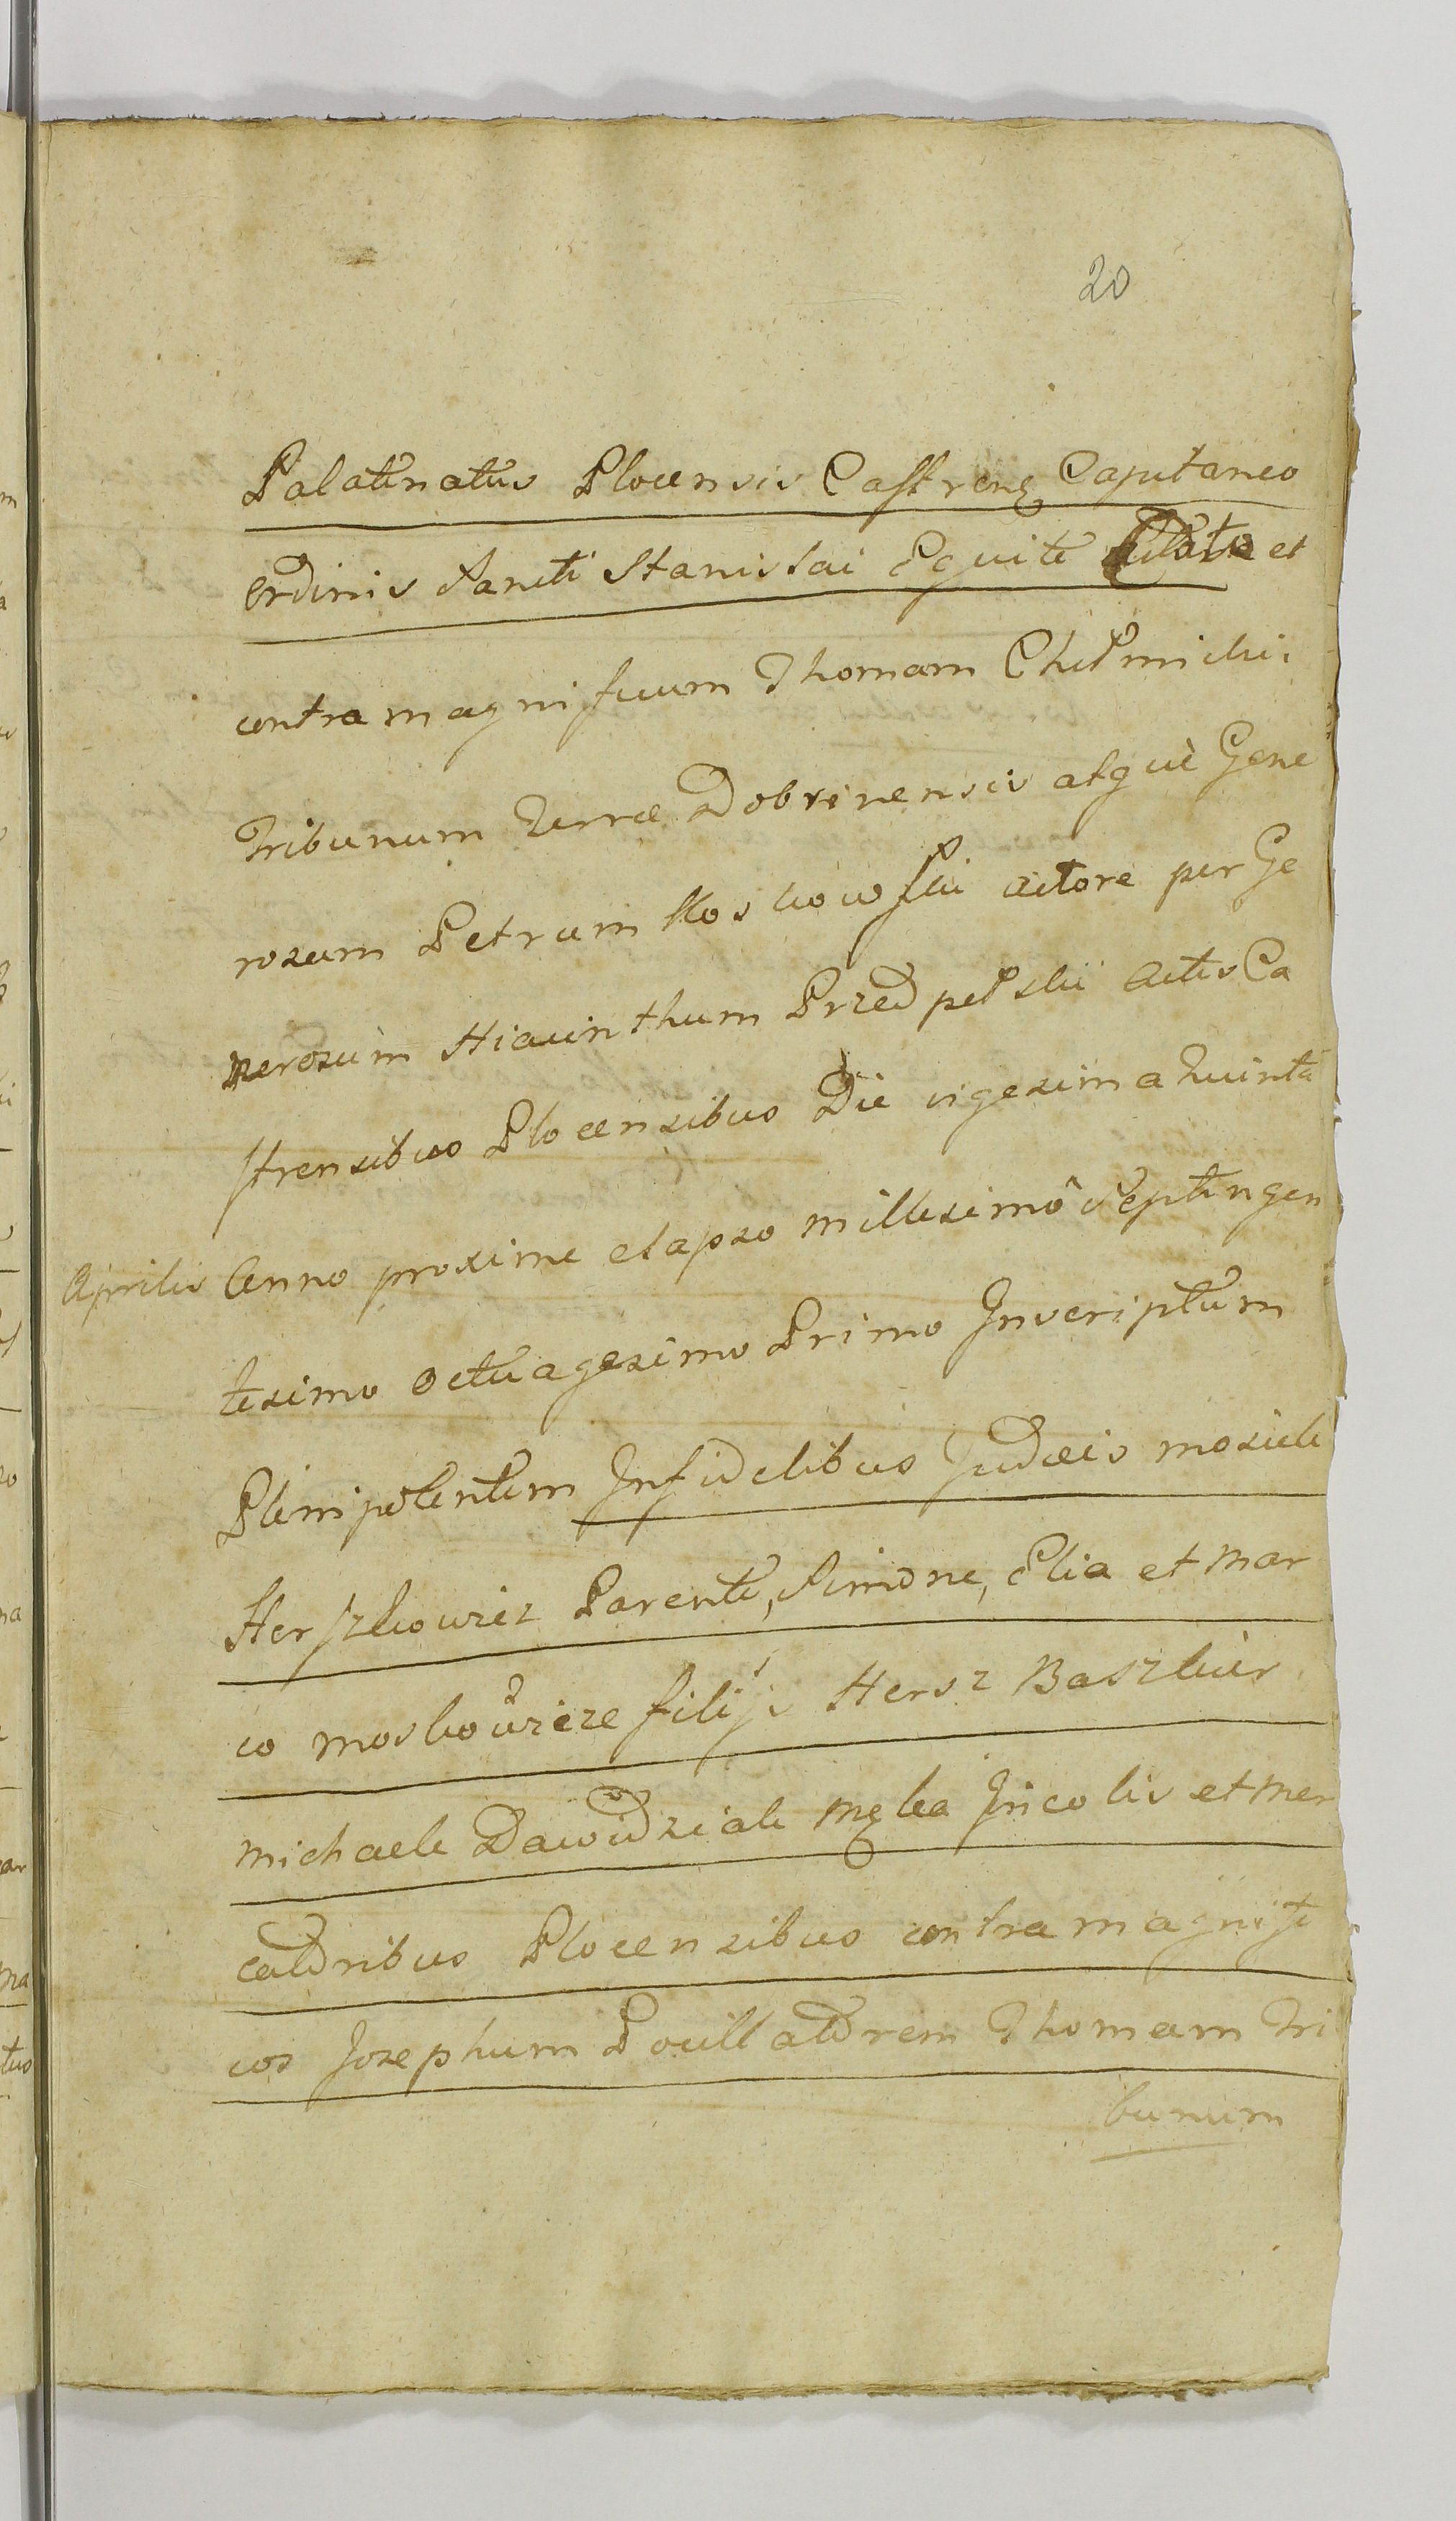 20
Palatinatus Plocensis Castrens Capitaneo
Ordinis Sancti Stanislai Equite et
contra magnificum Thomam Chełmicki
Tribunum Terræ Dobrinensis atquè Gene
rozum Petrum Koskowski actore per Ge
nerozum Hiacinthum Przedpełski Actis Ca
strensibus Plocensibus Die vigesima Quinta
Aprilis Anno proxime elapso millesimô Septingen
tesimo octuagesimo Primo Inscriptum
Plenipotentem Infidelibus Judæis mosiek
Herszkowicz Parente, Simone, Elia et Mar
co moskowicze filijs Hersz Baszkier
michaele Dawidziak Męka Incolis et Mer
catoribus Plocensibus contra magnifi
cos Josephum Pocillatorem Thomam Tri
bunum